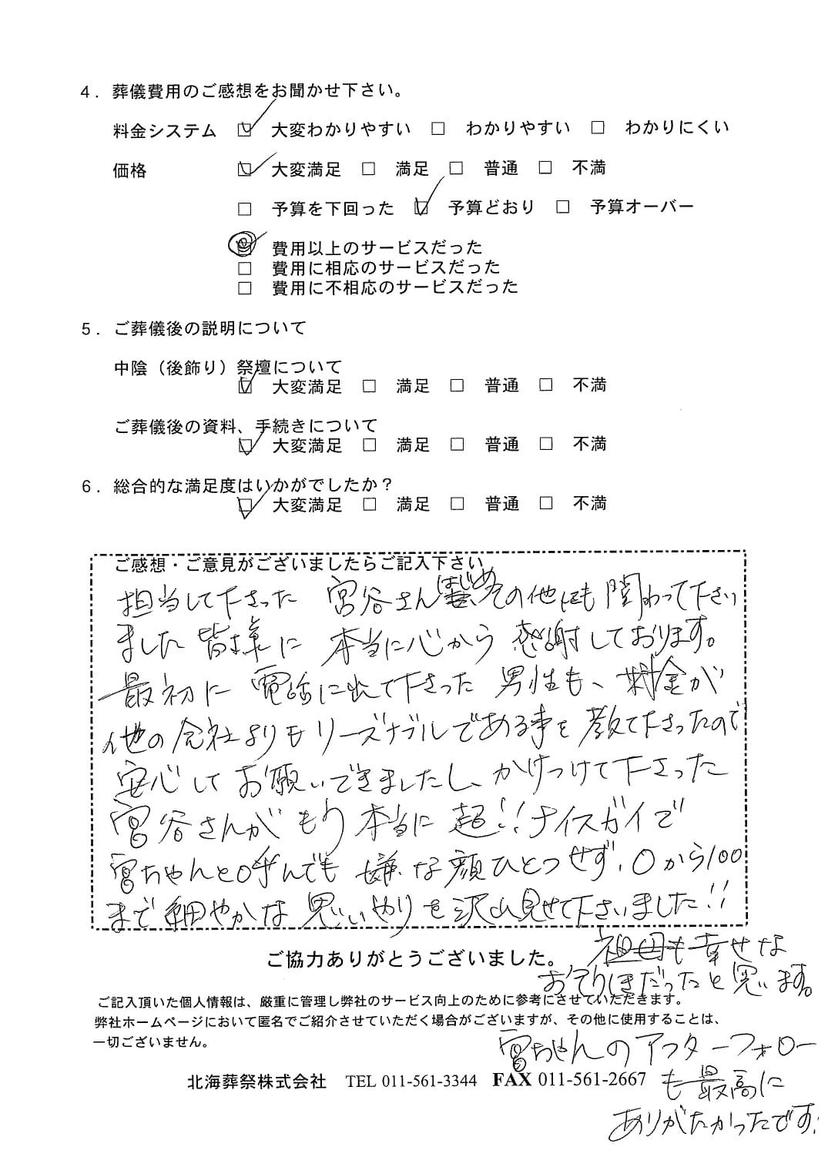 4．葬儀費用のご感想をお聞かせ下さい。
料金システム ☑ 大変わかりやすい □ わかりやすい □ わかりにくい
価格 ☑ 大変満足 □ 満足 □ 普通 □ 不満
□ 予算を下回った ☑ 予算どおり □ 予算オーバー
◎ 費用以上のサービスだった
□ 費用に相応のサービスだった
□ 費用に不相応のサービスだった
5．ご葬儀後の説明について
中陰（後飾り）祭壇について
☑ 大変満足 □ 満足 □ 普通 □ 不満
ご葬儀後の資料、手続きについて
☑ 大変満足 □ 満足 □ 普通 □ 不満
6．総合的な満足度はいかがでしたか？
☑ 大変満足 □ 満足 □ 普通 □ 不満
ご感想・ご意見がございましたらご記入下さい
担当して下さった 宮谷さんはじめその他にも関わって下さい
ました皆様に 本当に心から 感謝しております。
最初に 電話に出て下さった 男性も、料金が
他の会社よりもリーズナブルである事を教て下さったので
安心して お願いできましたし、かけつけて下さった
宮谷さんがもう本当に 超!!ナイスガイで
宮ちゃんと呼んでも 嫌な顔ひとつせず、0から100
まで細やかな 思いやりを沢山見せて下さいました!!
ご協力ありがとうございました。
祖母も幸せな
おそうしきだったと思います。
ご記入頂いた個人情報は、厳重に管理し弊社のサービス向上のために参考にさせていただきます。
弊社ホームページにおいて匿名でご紹介させていただく場合がございますが、その他に使用することは、
一切ございません。
宮ちゃんのアフターフォロー
も最高に
ありがたかったです!
北海葬祭株式会社 TEL 011-561-3344 FAX 011-561-2667